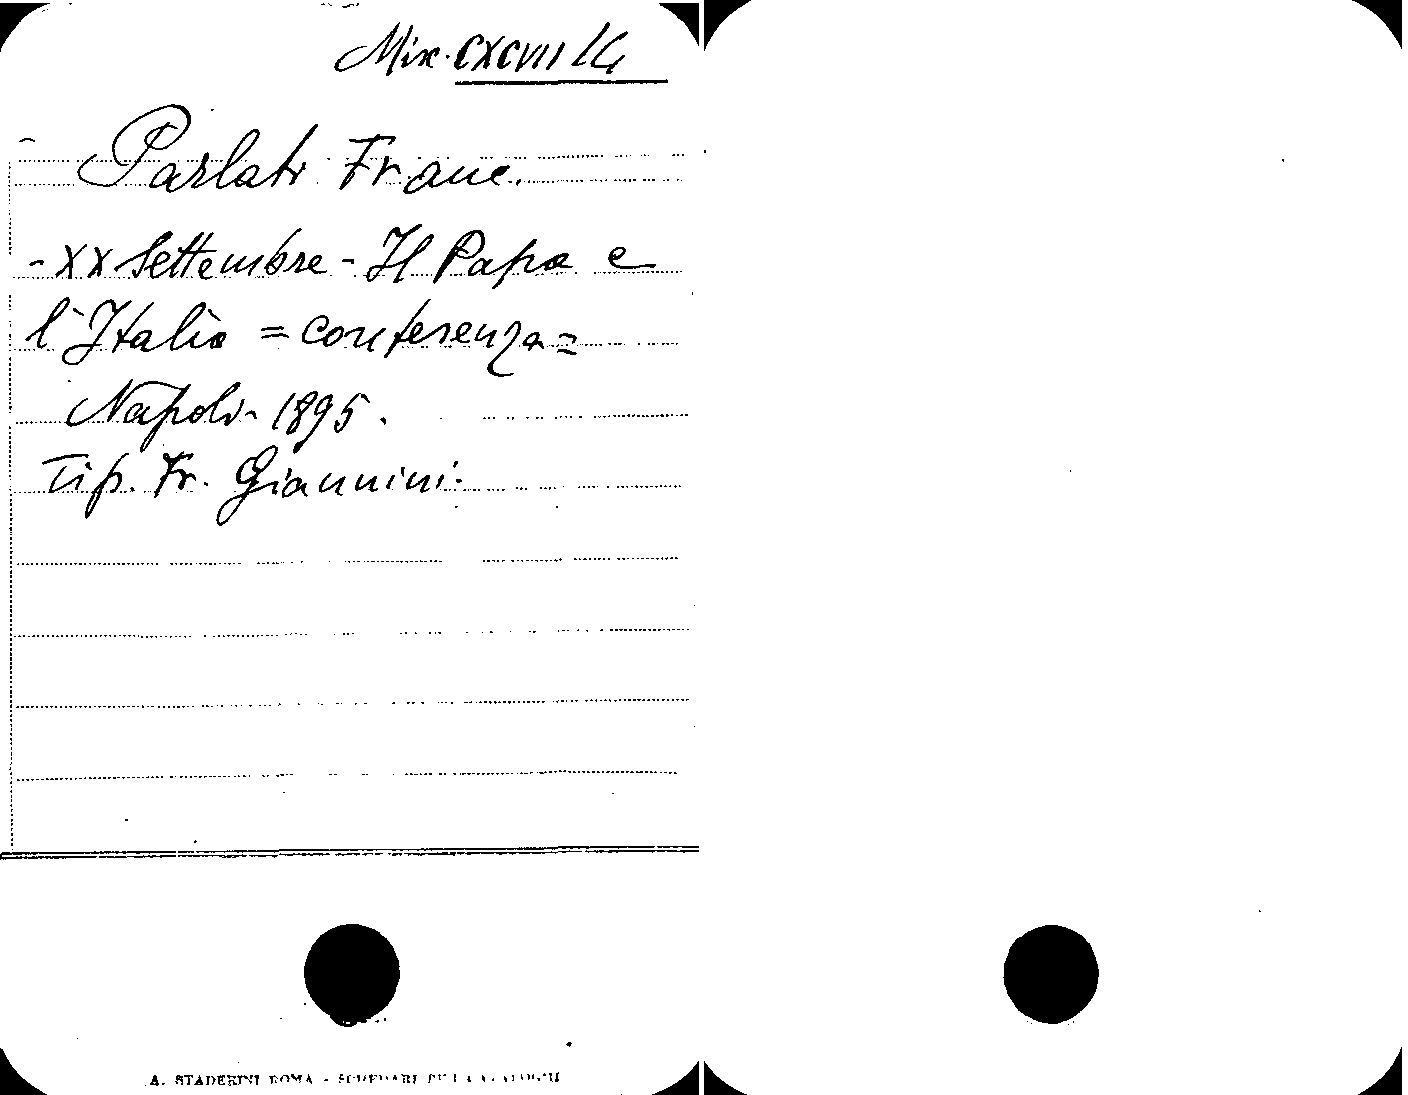 Mix. CXCVII 14
Parlati Franc.
- XX Settembre - Il Papa e
l'Italia = conferenza =
Napoli - 1895.
Tip. Fr. Giannini.
A. STADERINI ROMA - SCHEDARI